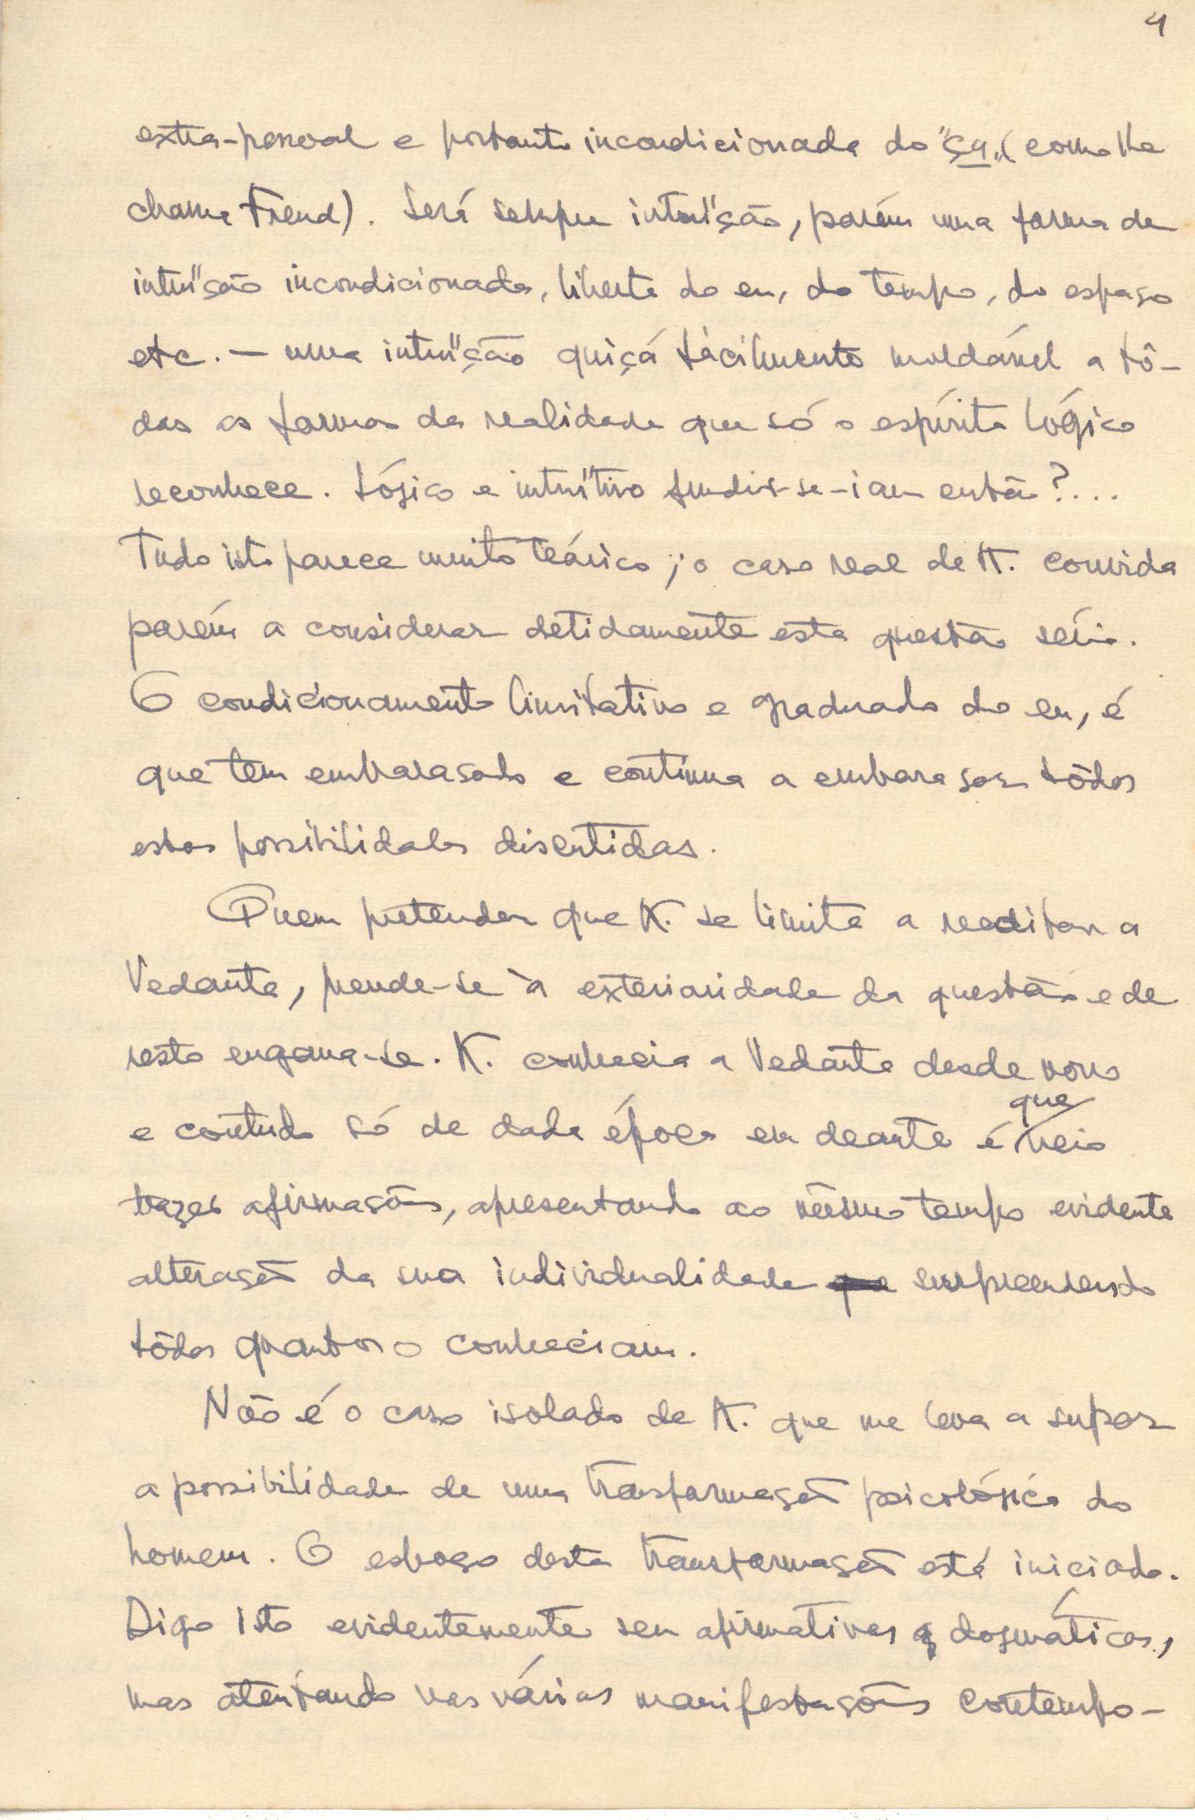 4
extra-pessoal e portanto incondicionada do "ça" (como lhe
chama Freud). Será sempre intuïção, porém uma forma de
intuïção incondicionada, liberta do eu, do tempo, do espaço
etc. — uma intuïção quiçá fàcilmente moldável a tô-
das as formas da realidade que só o espírito lógico
reconhece. Lógico e intuïtivo fundir-se-iam então?...
Tudo isto parece muito teórico; o caso real de K. convida
porém a considerar detidamente esta questão séria.
O condicionamento limitativo e graduado do eu, é
que tem embaraçado e continua a embaraçar tôdas
estas possibilidades discutidas.
Quem pretender que K. se limita a reeditar a
Vedanta, prende-se à exterioridade da questão e de
resto engana-se. K. conhecia a Vedanta desde novo
e contudo só de dada época em deante é que veio
trazer afirmações, apresentando ao mesmo tempo evidente
alteração da sua individualidade surpreendendo
tôdos quantos o conheciam.
Não é o caso isolado de K. que me leva a supor
a possibilidade de uma transformação psicológica do
homem. O esboço desta transformação está iniciado.
Digo isto evidentemente sem afirmativas dogmáticas,
mas atentando nas várias manifestações contempo-